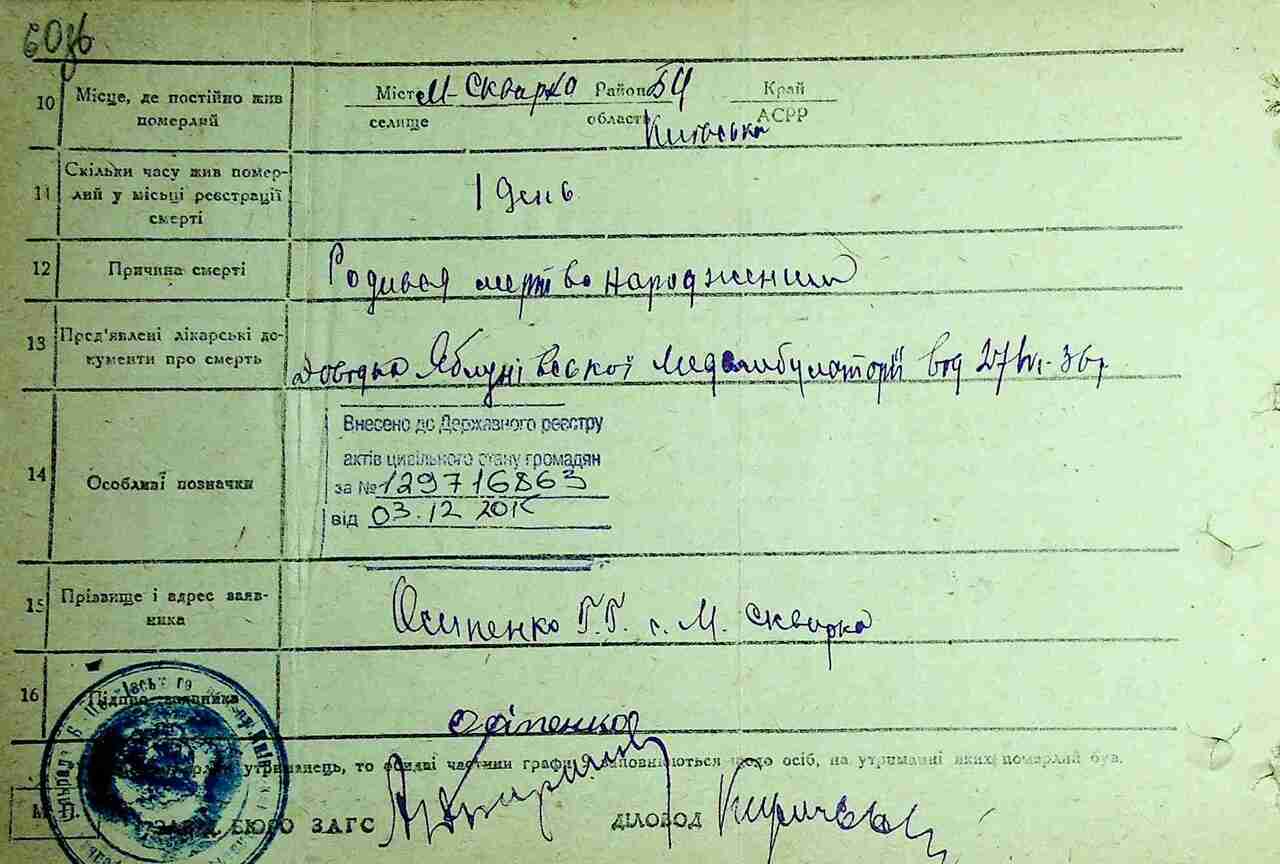 10 Місце, де постійно жив Місто М-Сквирка Район БЦ Край
померлий селище область Київська АСРР
11 Скільки часу жив помер-
лий у місці реєстрації 1 день
смерті
12 Причина смерті Родився мертво народженим
13 Пред'явлені лікарські до-
кументи про смерть довідка Яблунівської Медамбулаторії від 27/VI-36 р
14 Особливі позначки
Внесено до Державного реєстру
актів цивільного стану громадян
за № 129716863
від 03.12 201
15 Прізвище і адрес заяв-
ника Осипенко Г.Г. с. М. Сквирка
16 Підпис заявника Осіпенко
утриманець, то останні частини графи 9 заповнюються щодо осіб, на утриманні яких померлий був.
М. П. ЗАВ. БЮРО ЗАГС ДІЛОВОД